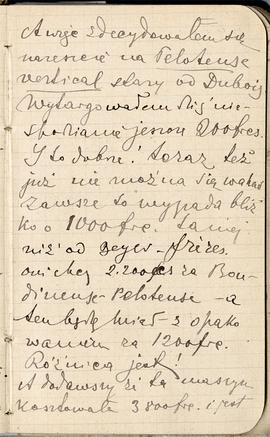 A więc zdecydowałem się
nareszcie na Peloteuse
vertical stary od Dubois
Wytargowałem się nie-
spodzianie jeszcze 200 frcs.
I to dobre! teraz też
już nie można się wahać
Zawsze to wypada bliz
ko o 1000 frc. taniej
niż od Beyer-frères.
oni chcą 2.200 frcs za Bou-
dineuse-Peloteuse - a
ten będę miał z opako
waniem za 1200 frc.
Różnica jest!
A dodawszy że ta maszyn
kosztowała 3800 frc. i jest